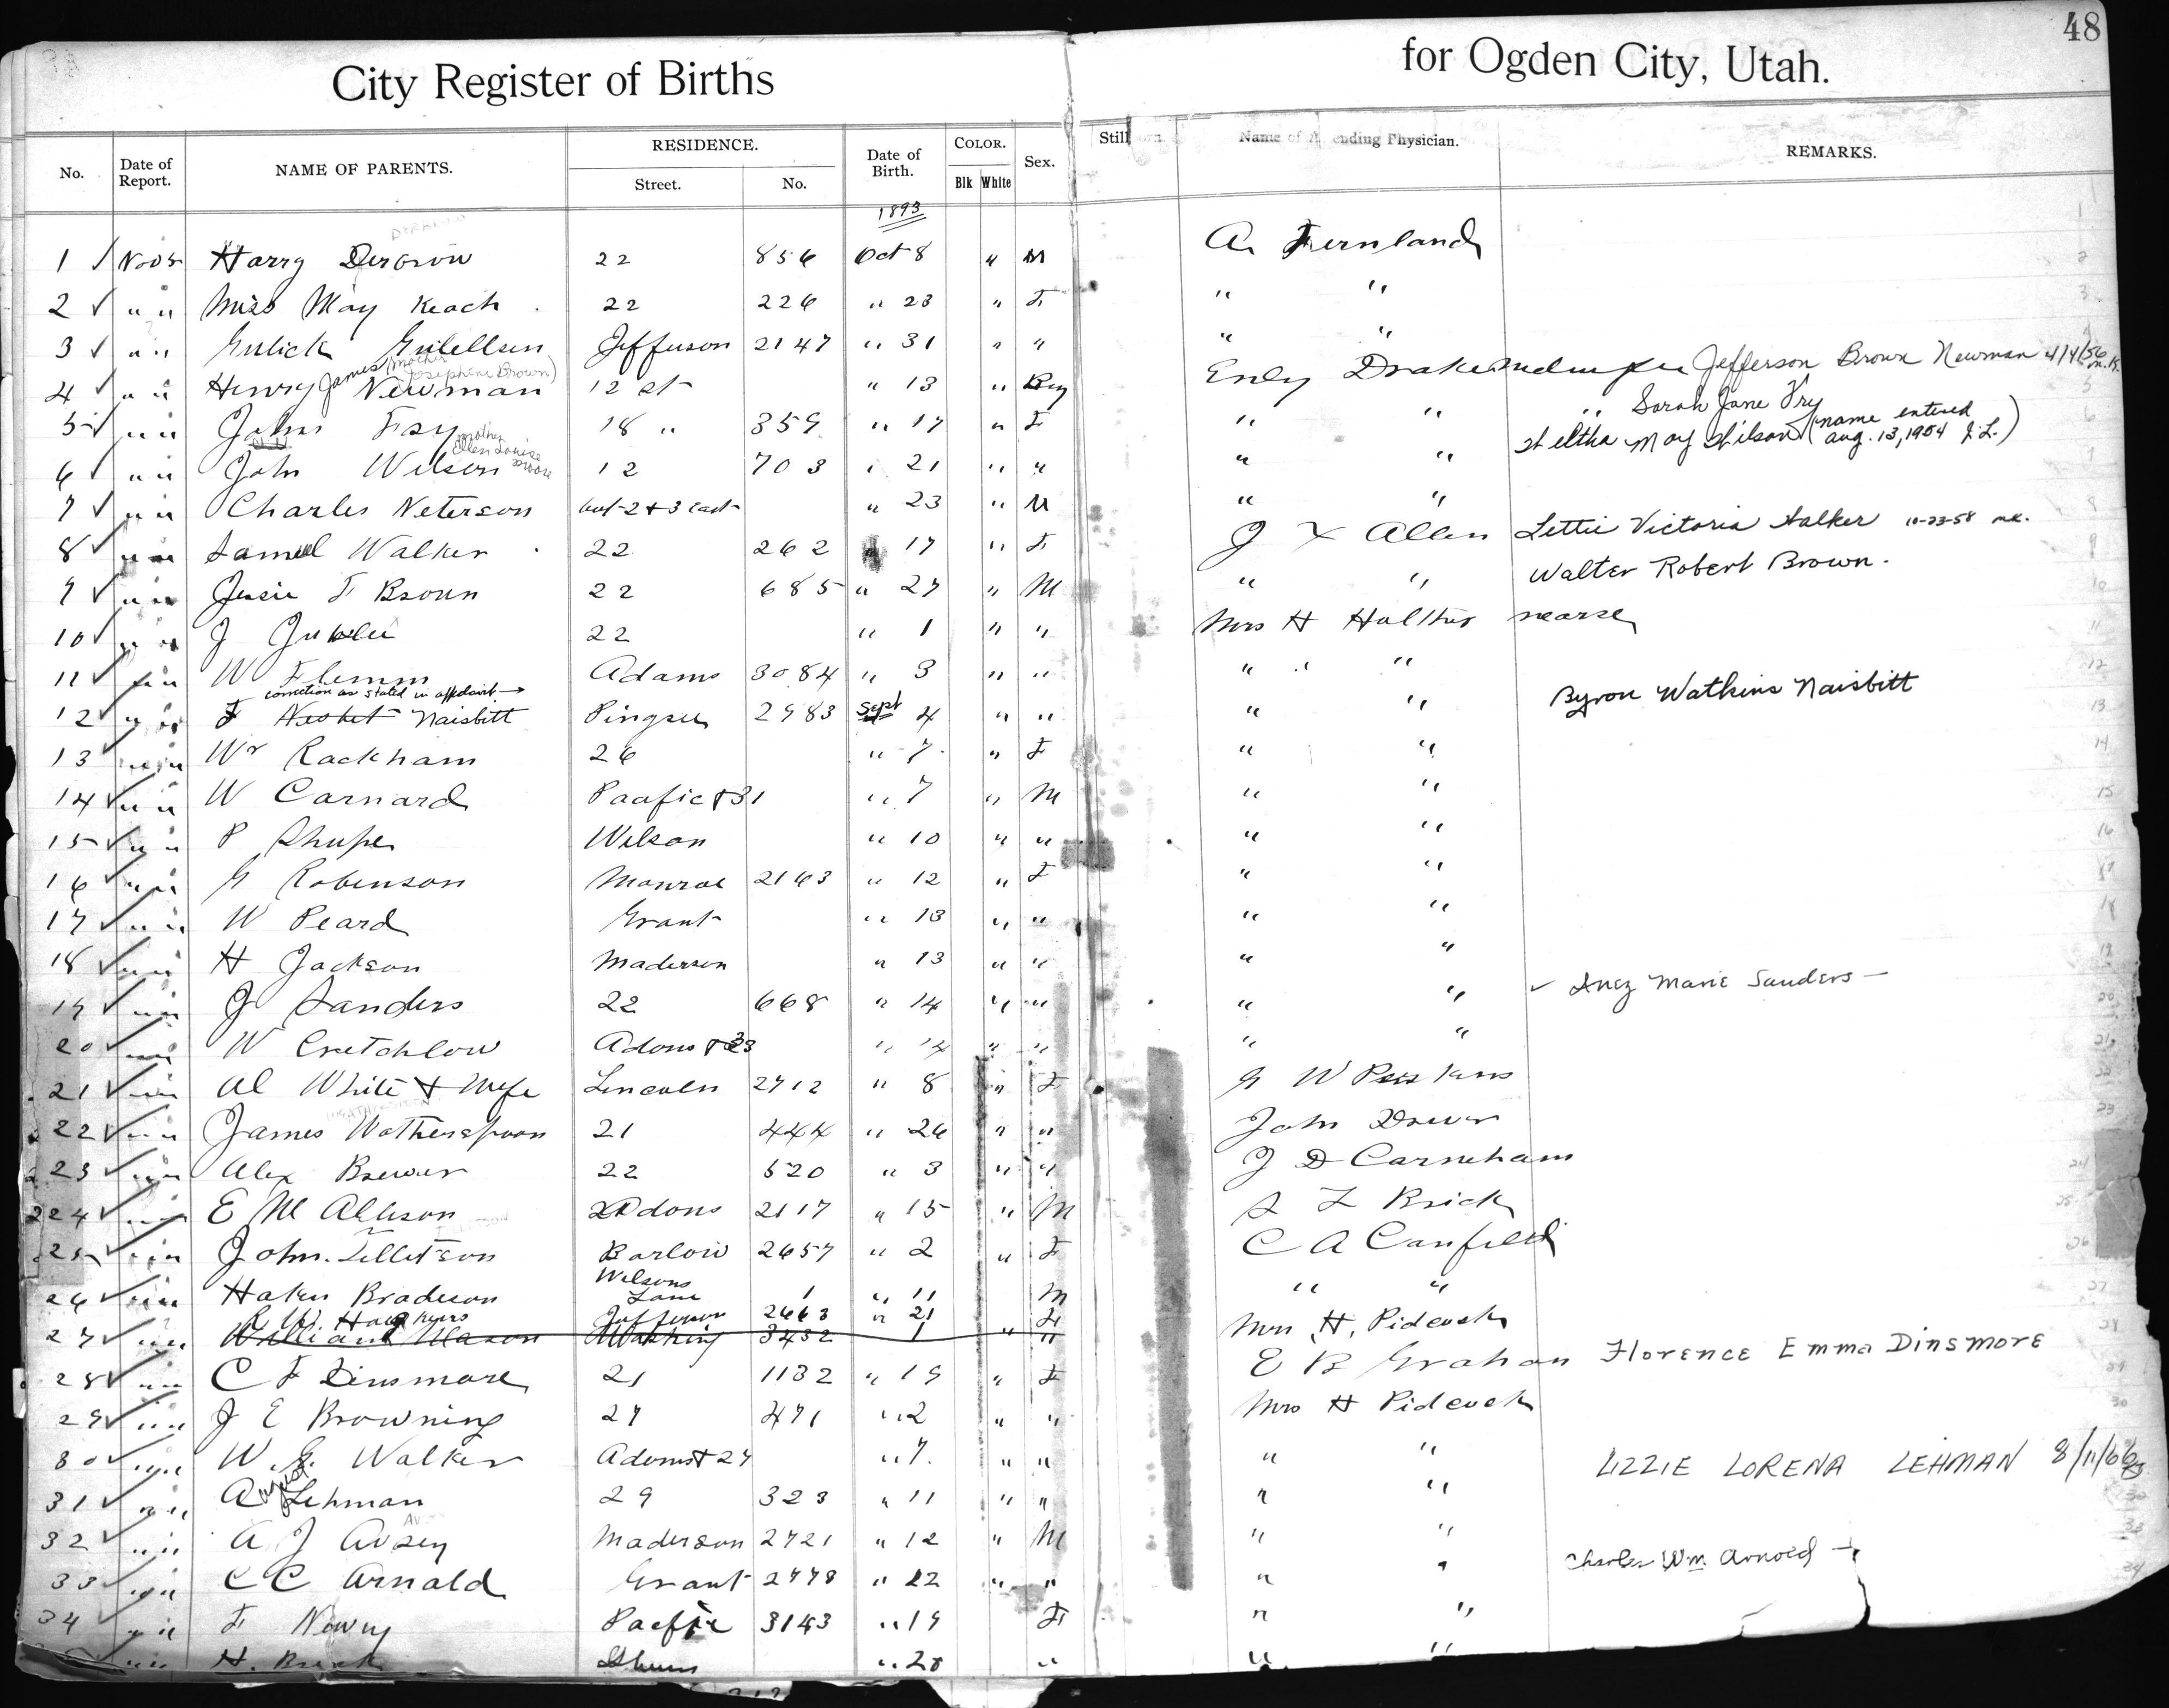 48
City Register of Births for Ogden City, Utah.
No. Date of Report. NAME OF PARENTS. RESIDENCE. Street. No. Date of Birth. COLOR. Blk White Sex. Still Name of Attending Physician. REMARKS.
1893
1 ✓ Harry 22 856 Oct 8 " M A. Fernland
2 ✓ " " Miss May Keach 22 226 " 23 " F " "
3 ✓ " " Gulick Gulellsen Jefferson 2147 " 31 " " " "
(mother Josephine Brown)
4 ✓ " " Henry James Newman 12 st " 13 " Boy Drake Jefferson Brown Newman 4/4/56 m.K.
5 ✓ " " John Fry 18 " 359 " 17 " F " " " Sarah Jane Fry
mother Ellen Louise Moore
6 ✓ " " John Wilson 12 703 " 21 " " " " May Wilson (name entered Aug. 13, 1954 J.L.)
7 ✓ " " Charles Neterson bet 2 & 3 East " 23 " M " "
8 ✓ " " Samuel Walker 22 262 " 17 " F J X Allen Lettie Victoria Walker 10-23-58 mk.
9 ✓ " " Jesse F Brown 22 685 " 27 " M " " Walter Robert Brown.
10 ✓ " " J 22 " 1 " " Mrs H Halther nearse
11 ✓ " " W Flemm Adams 3084 " 3 " " " "
correction as stated in affidavit →
12 ✓ " " F Nesbet Naisbitt Pingree 2983 Sept 4 " " " " Byron Watkins Naisbitt
13 ✓ " " Wr Rackham 26 " 7 " F " "
14 ✓ " " W Carnard Pacific & 31 " 7 " M " "
15 ✓ " " P Shupe Wilson " 10 " " " "
16 ✓ " " G Robenson Monroe 2163 " 12 " F " "
17 ✓ " " W Peard Grant " 13 " " " "
18 ✓ " " H Jackson Maderson " 13 " " " "
19 ✓ " " J Sanders 22 668 " 14 " " " " ✓ Inez Marie Sanders —
20 ✓ " " W Cretchlow Adams & 33 " 14 " " " "
21 ✓ " " Al White & Wife Lincoln 2712 " 8 " F G W Perkins
22 ✓ " " James Wotherspoon 21 444 " 26 " " John Driver
23 ✓ " " Alex Brewer 22 520 " 3 " " J D Carneham
24 ✓ " " E M Allison Adams 2117 " 15 " M S L Brick
25 " " John Tilletson Barlow 2657 " 2 " F C A Canfield
26 ✓ " " Haken Bradeson Wilsons Lane " 11 M " "
Jefferson 2663 " 21 F
27 ✓ " " William Mason 3432 1 " " Mrs H. Pidcock
28 ✓ " " C F Dinsmore 21 1132 " 19 " F E B Graham Florence Emma Dinsmore
29 ✓ " " J E Browning 27 471 " 2 " " Mrs H Pidcock
30 ✓ " " W G. Walker Adams & 27 " 7. " " " "
31 ✓ " " August Lehman 29 323 " 11 " " " " LIZZIE LORENA LEHMAN 8/11/66
32 ✓ " " A J Avsey Maderson 2721 " 12 " M " "
33 ✓ " " C C Arnald Grant 2778 " 22 " " " " Charles Wm. Arnold
34 " " F Newey Pacific 3143 " 19 F " "
" " H. " 20 " " "